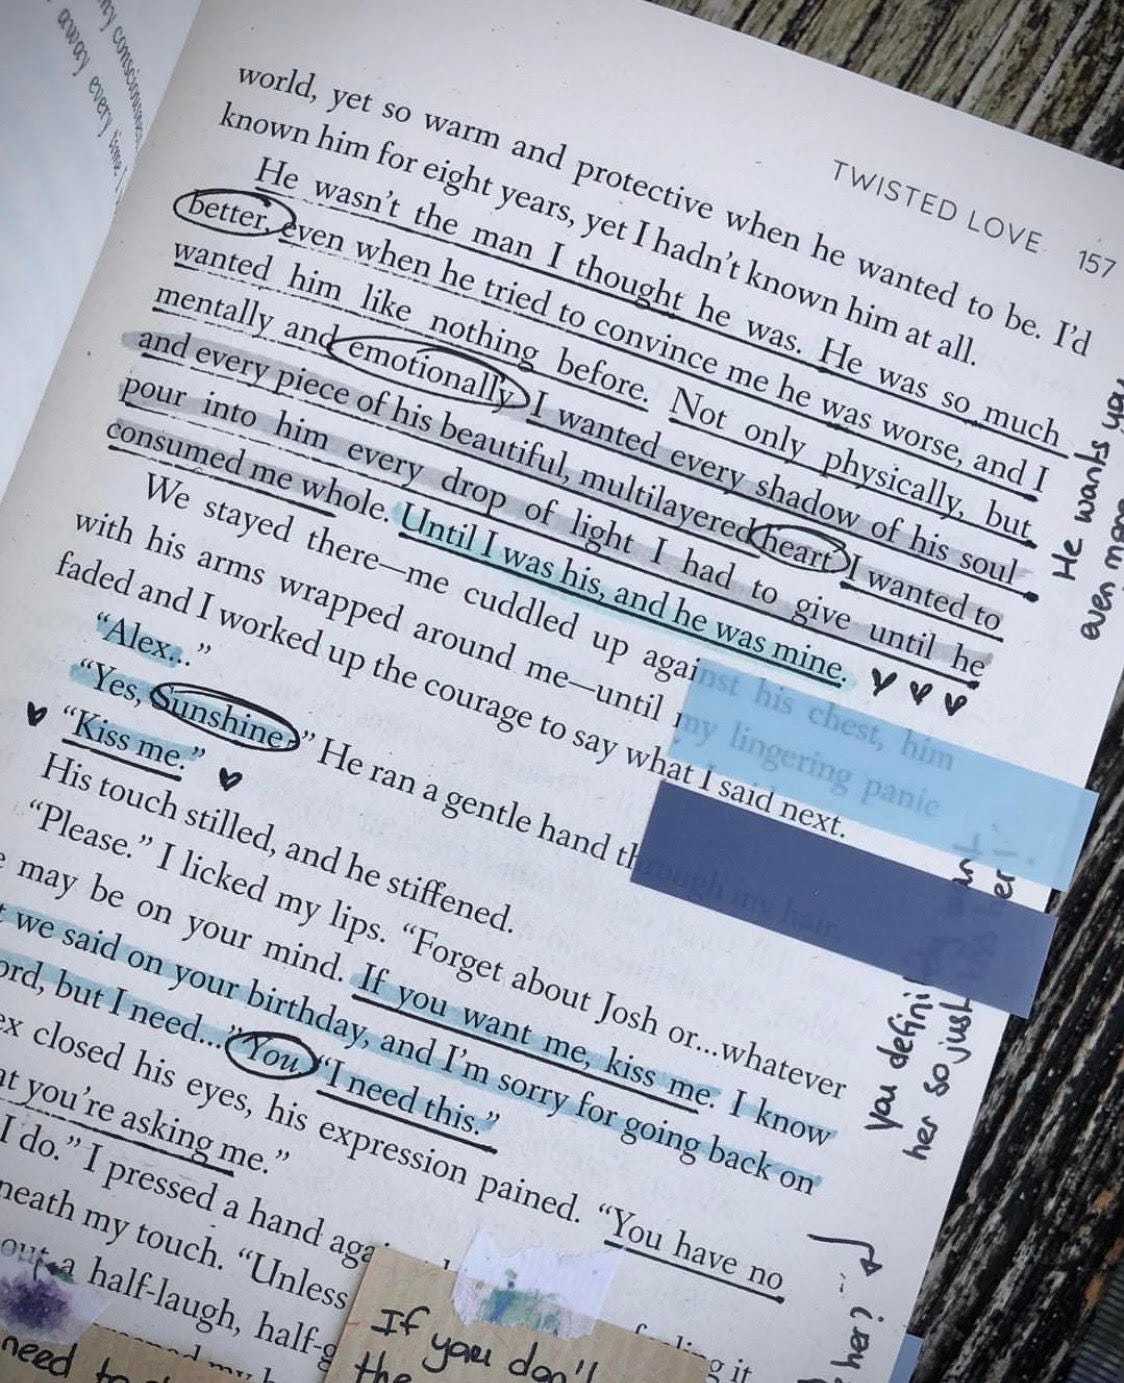 my consciousness
away every time I
TWISTED LOVE 157
world, yet so warm and protective when he wanted to be. I’d
known him for eight years, yet I hadn’t known him at all.
He wasn’t the man I thought he was. He was so much
better, even when he tried to convince me he was worse, and I
wanted him like nothing before. Not only physically, but
mentally and emotionally. I wanted every shadow of his soul
and every piece of his beautiful, multilayered heart. I wanted to
pour into him every drop of light I had to give until he
consumed me whole. Until I was his, and he was mine.
We stayed there—me cuddled up against his chest, him
with his arms wrapped around me—until my lingering panic
faded and I worked up the courage to say what I said next.
“Alex...”
“Yes, Sunshine?” He ran a gentle hand through my hair.
“Kiss me.”
His touch stilled, and he stiffened.
“Please.” I licked my lips. “Forget about Josh or...whatever
may be on your mind. If you want me, kiss me. I know
we said on your birthday, and I’m sorry for going back on
but I need...” You “I need this.”
closed his eyes, his expression pained. “You have no
you’re asking me.”
I do.” I pressed a hand
my touch. “Unless
a half-laugh,
it
He wants you
even more
you
her so just
her?
need to
If you don't
the